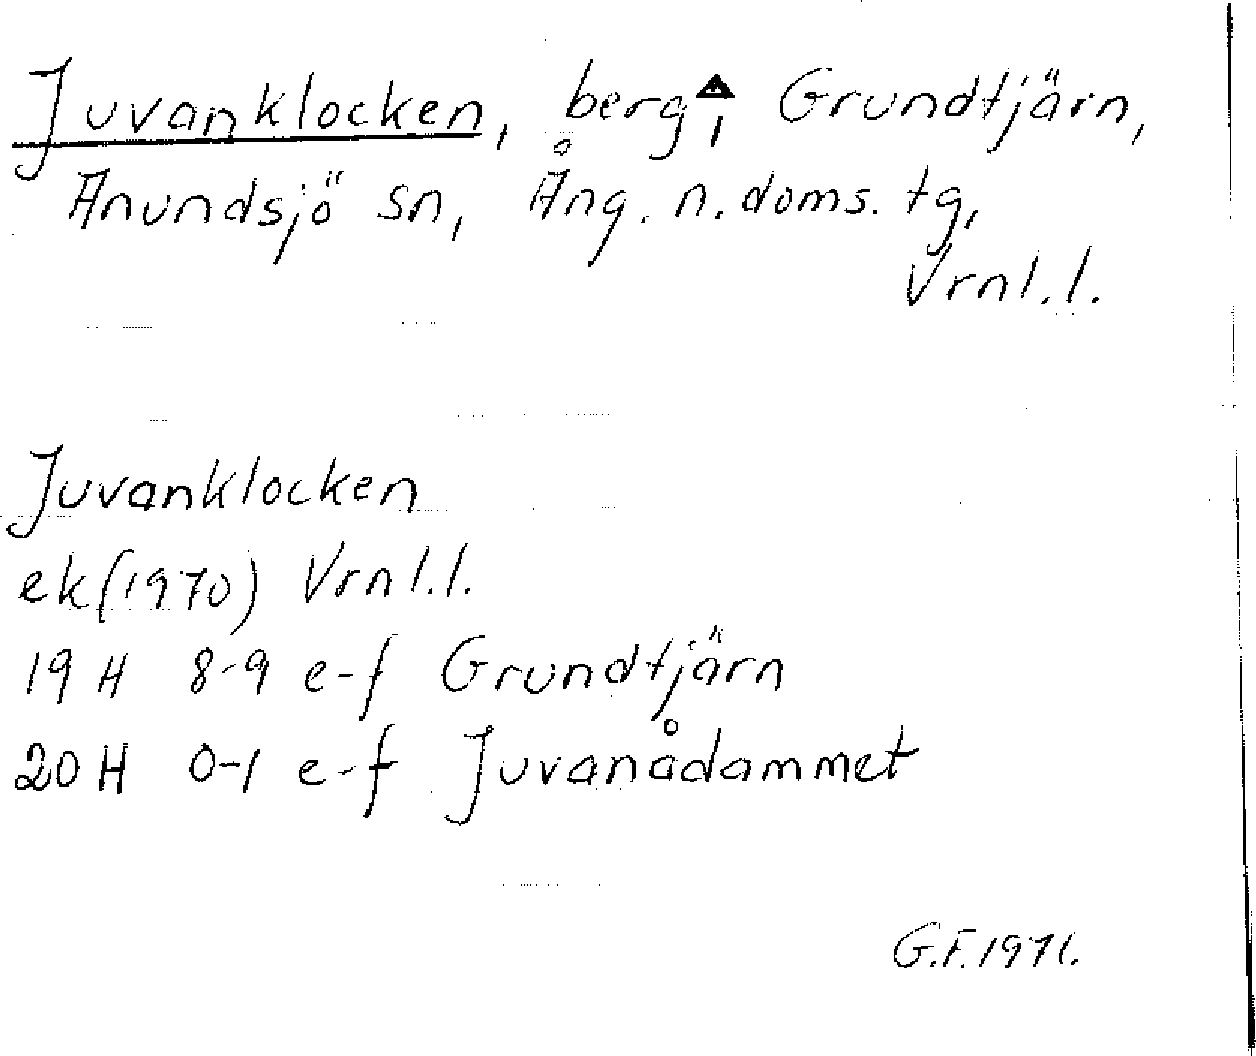 Juvanklocken, berg, Grundtjärn,
Anundsjö sn, Ång. n. doms. tg,
Vrnl.l.
Juvanklocken
ek (1970) Vrnl.l.
19 H 8-9 e-f Grundtjärn
20 H 0-1 e-f Juvanådammet
G.F. 1971.